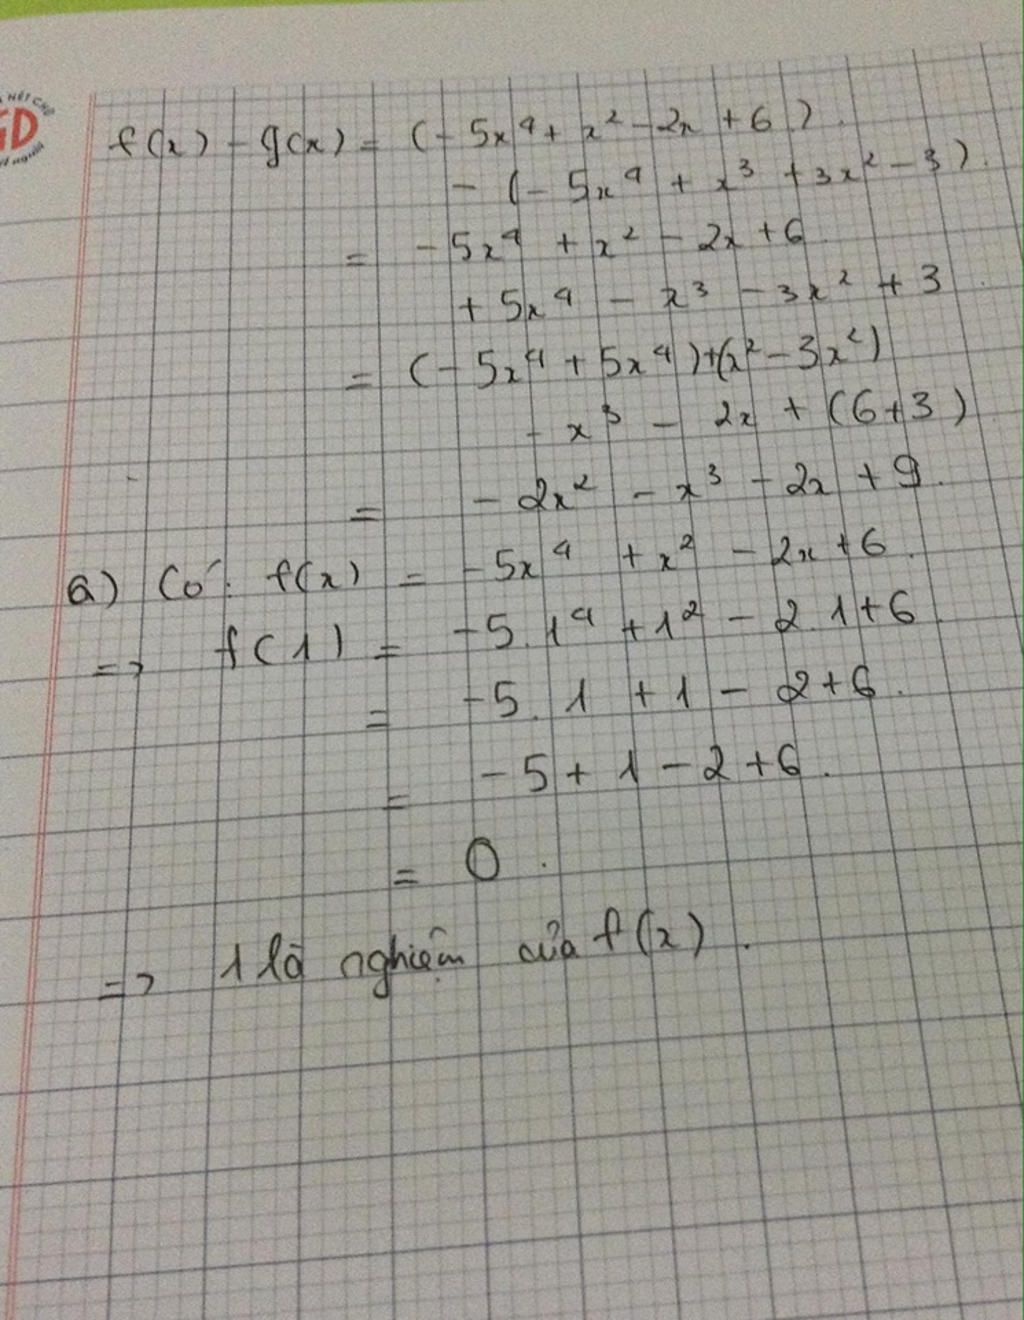 NÉT CHỮ
GD
f(x) - g(x) = (-5x⁴ + x² - 2x + 6).
- (-5x⁴ + x³ + 3x² - 3).
= -5x⁴ + x² - 2x + 6
+ 5x⁴ - x³ - 3x² + 3
= (-5x⁴ + 5x⁴) + (x² - 3x²)
- x³ - 2x + (6+3)
= - 2x² - x³ - 2x + 9.
a) Có: f(x) = -5x⁴ + x² - 2x + 6.
=> f(1) = -5.1⁴ + 1² - 2.1 + 6
= -5.1 + 1 - 2 + 6.
= -5 + 1 - 2 + 6.
= 0.
=> 1 là nghiệm của f(x).